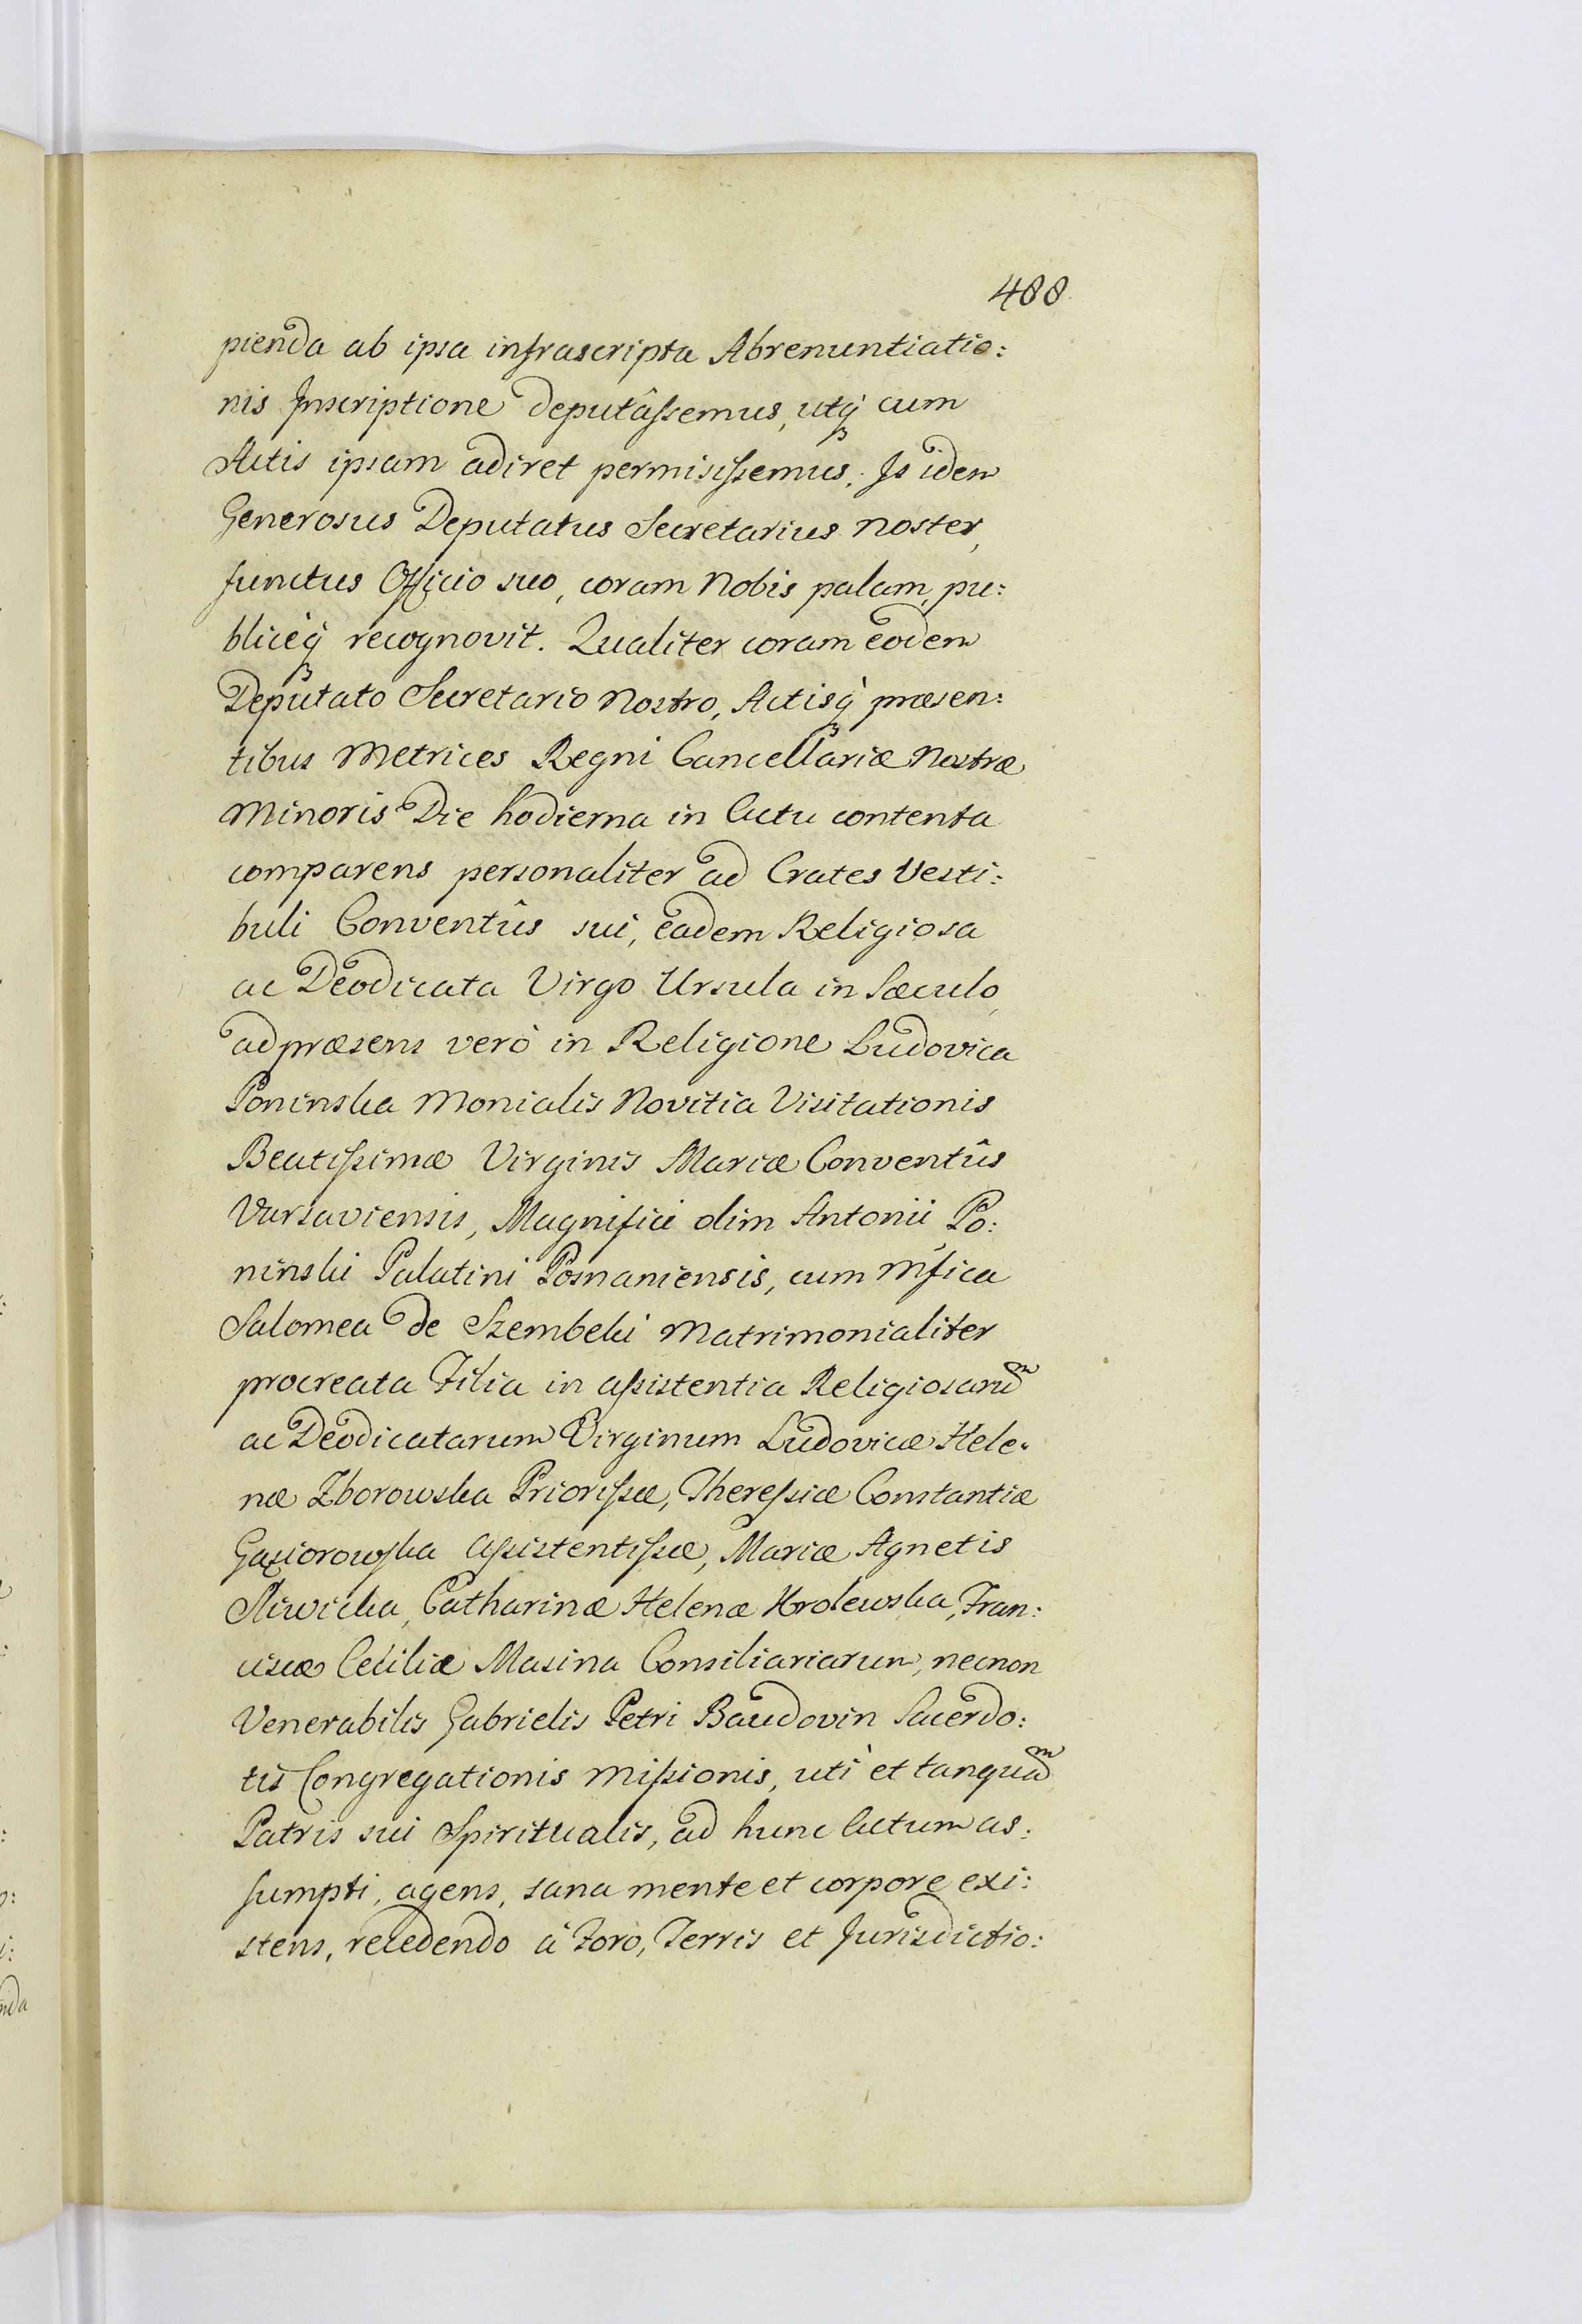 488.
pienda ab ipsa infrascripta Abrenuntiatio:
nis Inscriptione deputâssemus, utq̀ cum
Actis ipsam adiret permisissemus. Is idem
Generosus Deputatus Secretarius Noster,
functus Officio suo, coram Nobis palam, pu:
blicèq̀ recognovit. Qualiter coram eodem
Deputato Secretario Nostro, Actisq̀ præsen:
tibus Metrices Regni Cancellariæ Nostræ
Minoris Die hodierna in Actu contenta
comparens personaliter ad Crates Vesti:
buli Conventûs sui, eadem Religiosa
ac Deodicata Virgo Ursula in Sæculo,
ad præsens verò in Religione Ludovica
Poninska Monialis Novitia Visitationis
Beatissimæ Virginis Mariæ Conventûs
Varsaviensis, Magnifici olim Antonii Po:
ninski Palatini Posnaniensis, cum Mfica
Salomea de Szembeki Matrimonialiter
procreata Filia in assistentia Religiosarum
ac Deodicatarum Virginum Ludovicæ Hele:
næ Zborowska Priorissæ, Theressiæ Constantiæ
Gąsiorowska Assistentissæ, Mariæ Agnetis
Sliwicka, Catharinæ Helenæ Krolewska, Fran:
ciscæ Ceciliæ Masina Consiliariarum, necnon
Venerabilis Gabrielis Petri Baudovin Sacerdo:
tis Congregationis Missionis, utì et tanquam
Patris sui Spiritualis, ad hunc Actum as:
sumpti, agens, sana mente et corpore exi:
stens, recedendo à Foro, Terris et Jurisdictio: